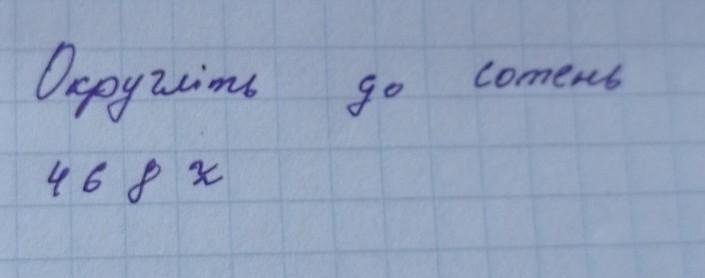 Округліть до сотень
468x